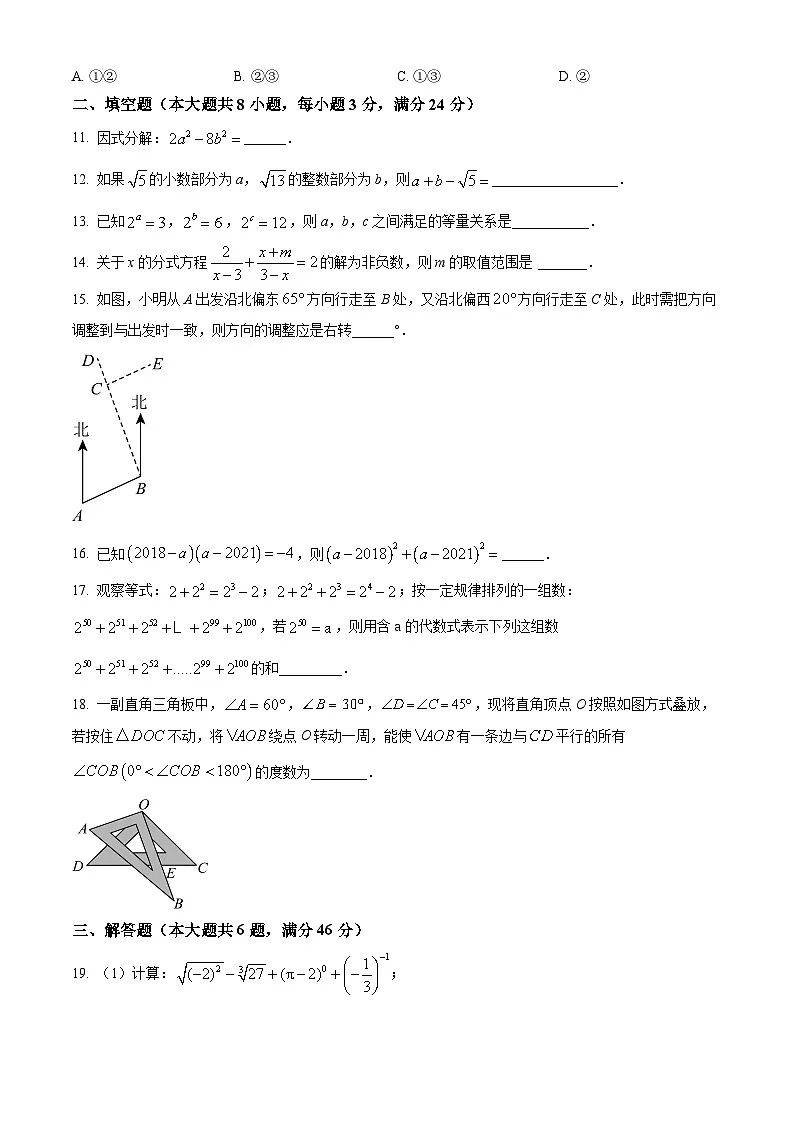 A. ①② B. ②③ C. ①③ D. ②
二、填空题（本大题共8小题，每小题3分，满分24分）
11. 因式分解：2a² − 8b² = ______．
12. 如果√5的小数部分为a，√13的整数部分为b，则a + b − √5 = __________________．
13. 已知2ᵃ = 3，2ᵇ = 6，2ᶜ = 12，则a，b，c之间满足的等量关系是___________．
14. 关于x的分式方程2/(x−3) + (x+m)/(3−x) = 2的解为非负数，则m的取值范围是 _______．
15. 如图，小明从A出发沿北偏东65°方向行走至B处，又沿北偏西20°方向行走至C处，此时需把方向
调整到与出发时一致，则方向的调整应是右转______°．
D
E
C
北
北
B
A
16. 已知(2018−a)(a−2021) = −4，则(a−2018)² + (a−2021)² = ______．
17. 观察等式：2 + 2² = 2³ − 2；2 + 2² + 2³ = 2⁴ − 2；按一定规律排列的一组数：
2⁵⁰ + 2⁵¹ + 2⁵² + L + 2⁹⁹ + 2¹⁰⁰，若2⁵⁰ = a，则用含a的代数式表示下列这组数
2⁵⁰ + 2⁵¹ + 2⁵² + .....2⁹⁹ + 2¹⁰⁰的和_________．
18. 一副直角三角板中，∠A = 60°，∠B = 30°，∠D=∠C=45°，现将直角顶点O按照如图方式叠放，
若按住△DOC不动，将VAOB绕点O转动一周，能使VAOB有一条边与CD平行的所有
∠COB(0° < ∠COB < 180°)的度数为________．
O
A
D
E
C
B
三、解答题（本大题共6题，满分46分）
19. （1）计算：√(−2)² − ³√27 + (π−2)⁰ + (−1/3)⁻¹；